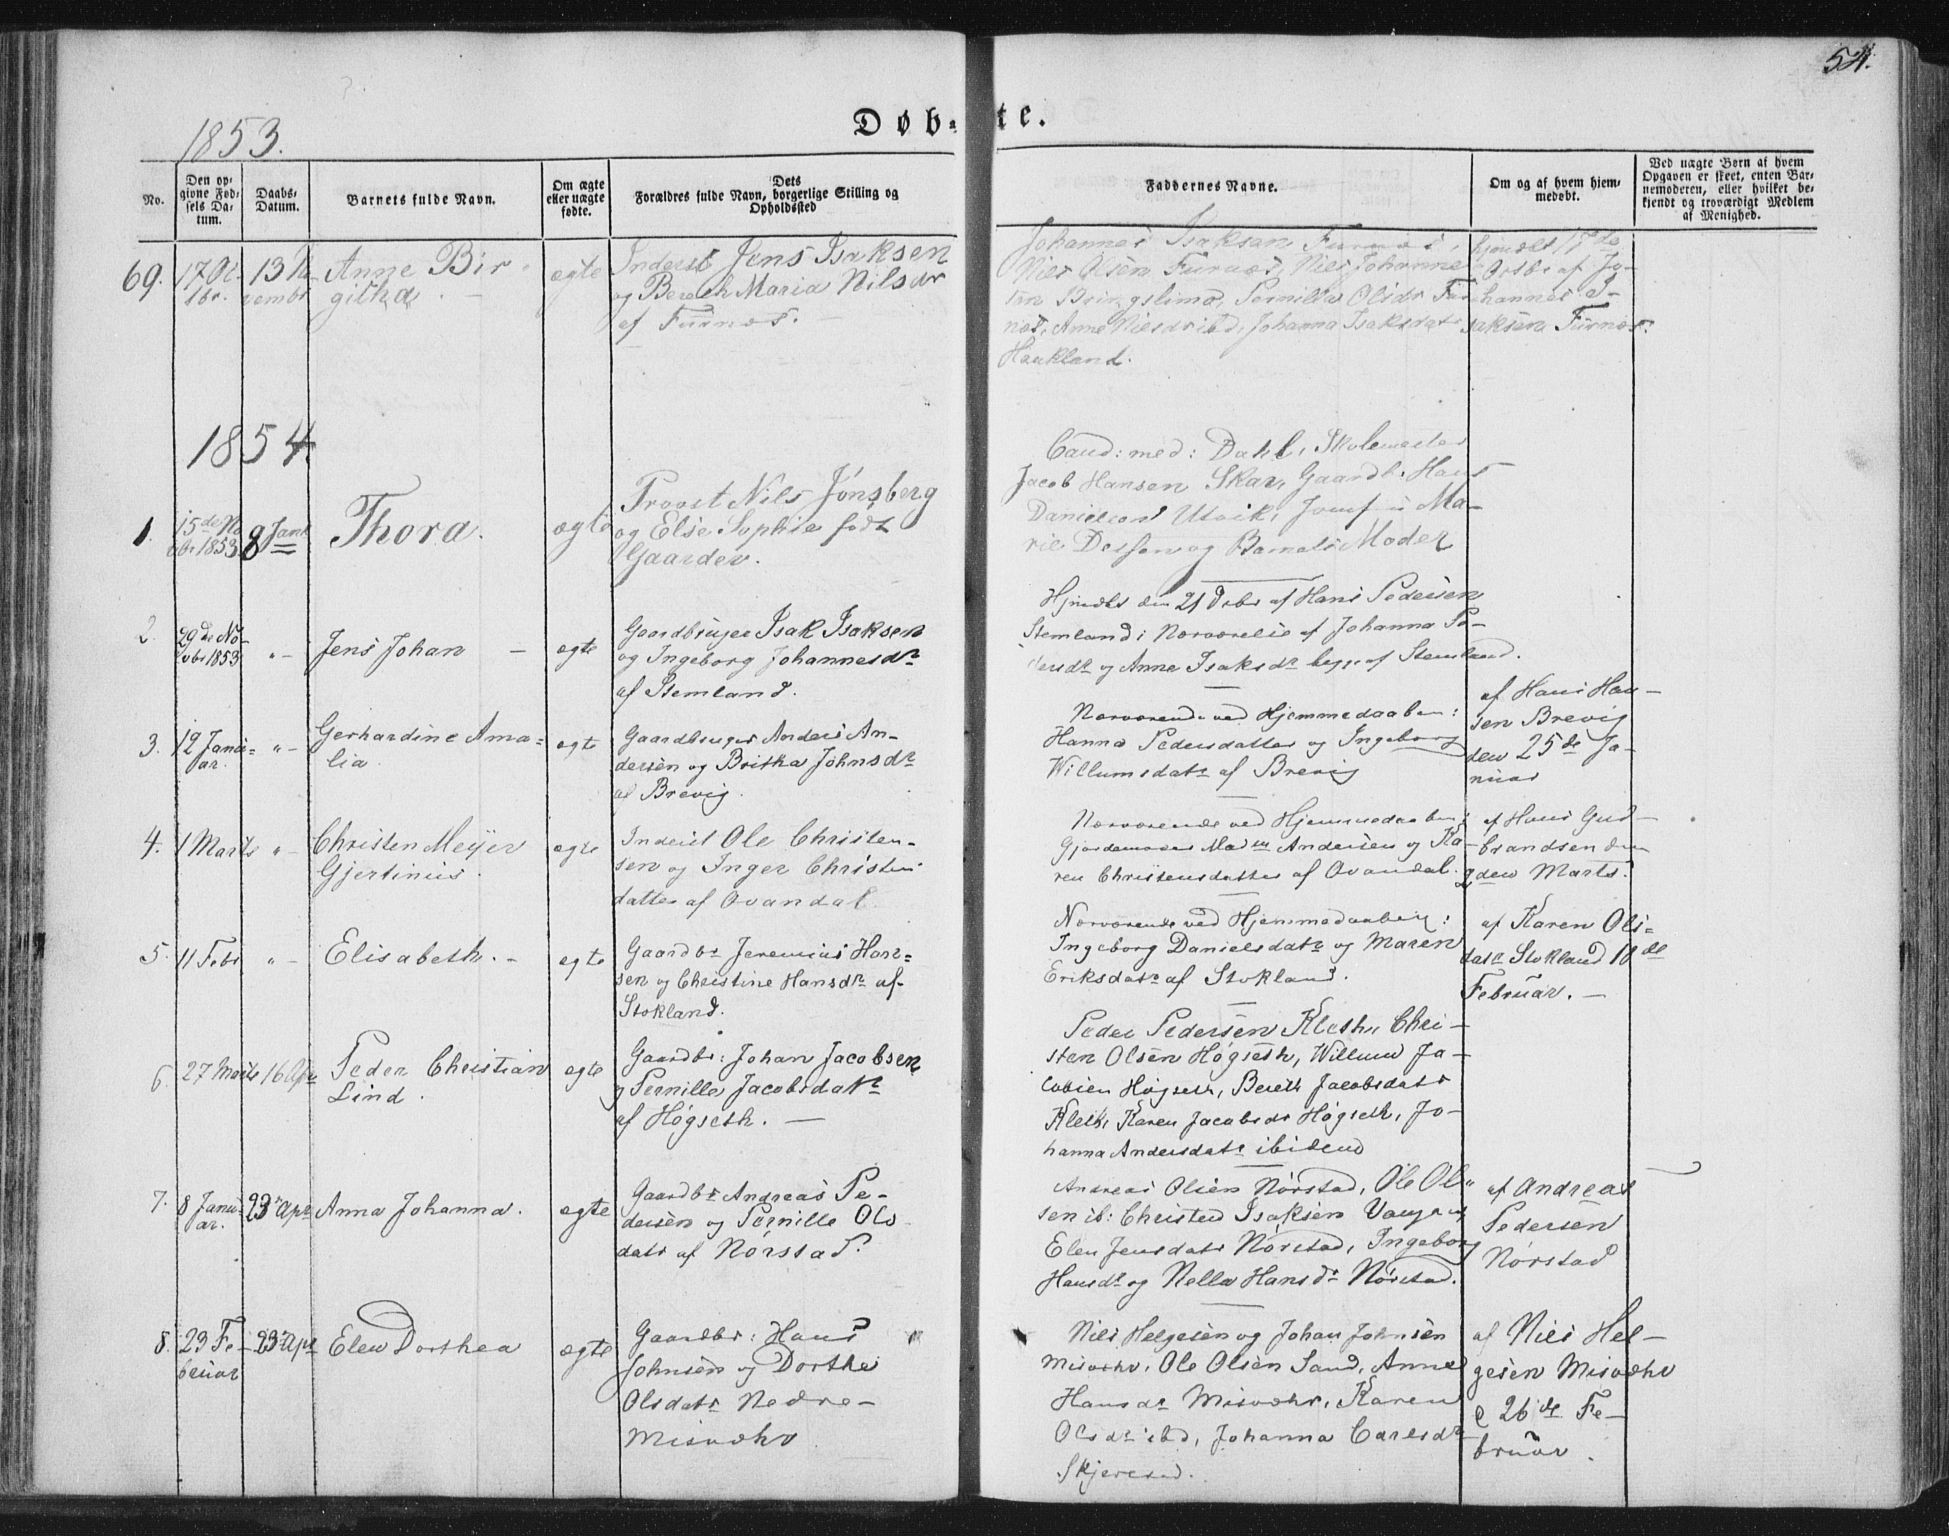 54.
1853.
Døb- te.
No.
Den op-
givne Fød-
sels Da-
tum.
Daabs-
Datum.
Barnets fulde Navn.
Om ægte
eller uægte
fødte.
Dets
Forældres fulde Navn, borgerlige Stilling og
Opholdssted
Faddernes Navne.
Om og af hvem hjem-
medøbt.
Ved uægte Børn af hvem
Opgaven er skeet, enten Bar-
nemoderen, eller hvilket be-
kjendt og troværdigt Medlem
af Menighed.
69.
17 Oc
tbr.
13 No
vembr
Anne Bir-
githa
ægte
Inderst Jens Isaksen
og Bereth Maria Nilsdr
af Furnæs.
Johannes Isaksen Furnæs,
Niels Olsen Furnæs, Niels Johanne-
sen Bringslimo, Pernilla Olsdr Fur-
næs, Anne Nielsdr ibd, Johanna Isaksdatr
Haukland.
hjmdbt 17de
Octbr af Jo-
hannes I-
saksen Furnæs.
1854.
1.
15de No
vbr 1853
8 Janr
Thora.
ægte
Provst Nils Jønsberg
og Else Sophie født
Gaarder.
Cand: med: Dahl, Skolemester
Jacob Hansen Skar, Gaardb. Hans
Danielsen Utvik, Jomfru Ma-
rie og Barnets Moder
2.
29de No-
vbr 1853
"-
Jens Johan -
ægte
Gaardbruger Isak Isaksen
og Ingeborg Johannesdr
af Stemland.
Hjmdbt den 21 Debr af Hans Pedersen
Stemland i Nærværelse af Johanna Pe-
dersdr og Anne Isaksdr begge af Stemland.
3.
12 Janu-
ar.
"-
Gerhardine Ama-
lia.
ægte
Gaardbruger Anders An-
dersen og Britha Johnsdr
af Brevig.
Nærværende ved Hjemmedaaben:
Hanna Pedersdatter og Ingeborg
Willumsdatr af Brevig
af Hans Han-
sen Brevig
den 25de Ja-
nuar
4.
1 Marts
"-
Christen Meyer
Gjertinius.
ægte
Inderst Ole Christen-
sen og Inger Christens
datter af Øvandal.
Nærværende ved Hjemmedaaben:
Gjordemoder Madm Andersen og Ka-
ren Christensdatter af Øvandal.
af Hans Gud-
brandsen den
2den Marts.
5.
11 Febr
"-
Elisabeth. -
ægte
Gaardbr Jeremias Han-
sen og Christine Hansdr af
Stokland.
Nærværende ved Hjemmedaaben:
Ingeborg Danielsdatr og Maren
Eriksdatr af Stokland.
af Karen Ols-
datr Stokland 18de
Februar. -
6.
27 Marts
16 Apr
Peder Christian
Lind.
ægte
Gaardbr: Johan Jacobsen
og Pernille Jacobsdatr
af Høgseth. -
Peder Pedersen Kleth, Chri-
sten Olsen Høgseth, Willum Ja-
cobsen Høgseth, Bereth Jacobsdatr
Kleth, Karen Jacobsdr Høgseth, Jo-
hanna Andersdatr ibidem
7.
8 Janu-
ar.
23 Apr
Anna Johanna.
ægte
Gaardbr Andreas Pe-
dersen og Pernille Ols
datr af Nørstad.
Andreas Olsen Nørstad, Ole Ol-
sen ib: Christen Isaksen
Elen Jensdatr Nørstad, Ingeborg
Hansdr og Nella Hansdr Nørstad.
af Andreas
Pedersen
Nørstad
8.
23 Fe-
bruar
23 Apr
Elen Dorthea
ægte
Gaardbr: Hans
Johnsen og Dorthe
Olsdatr Nedre-
Misvær
Niels Helgesen og Johan Johnsen
Misvær, Ole Olsen Sand, Anne
Hansdr Misvær, Karen
Olsdr ibd, Johanna Carlsdr
Skjerstad.
af Niels Hel-
gesen Misvær
26de Fe-
bruar.